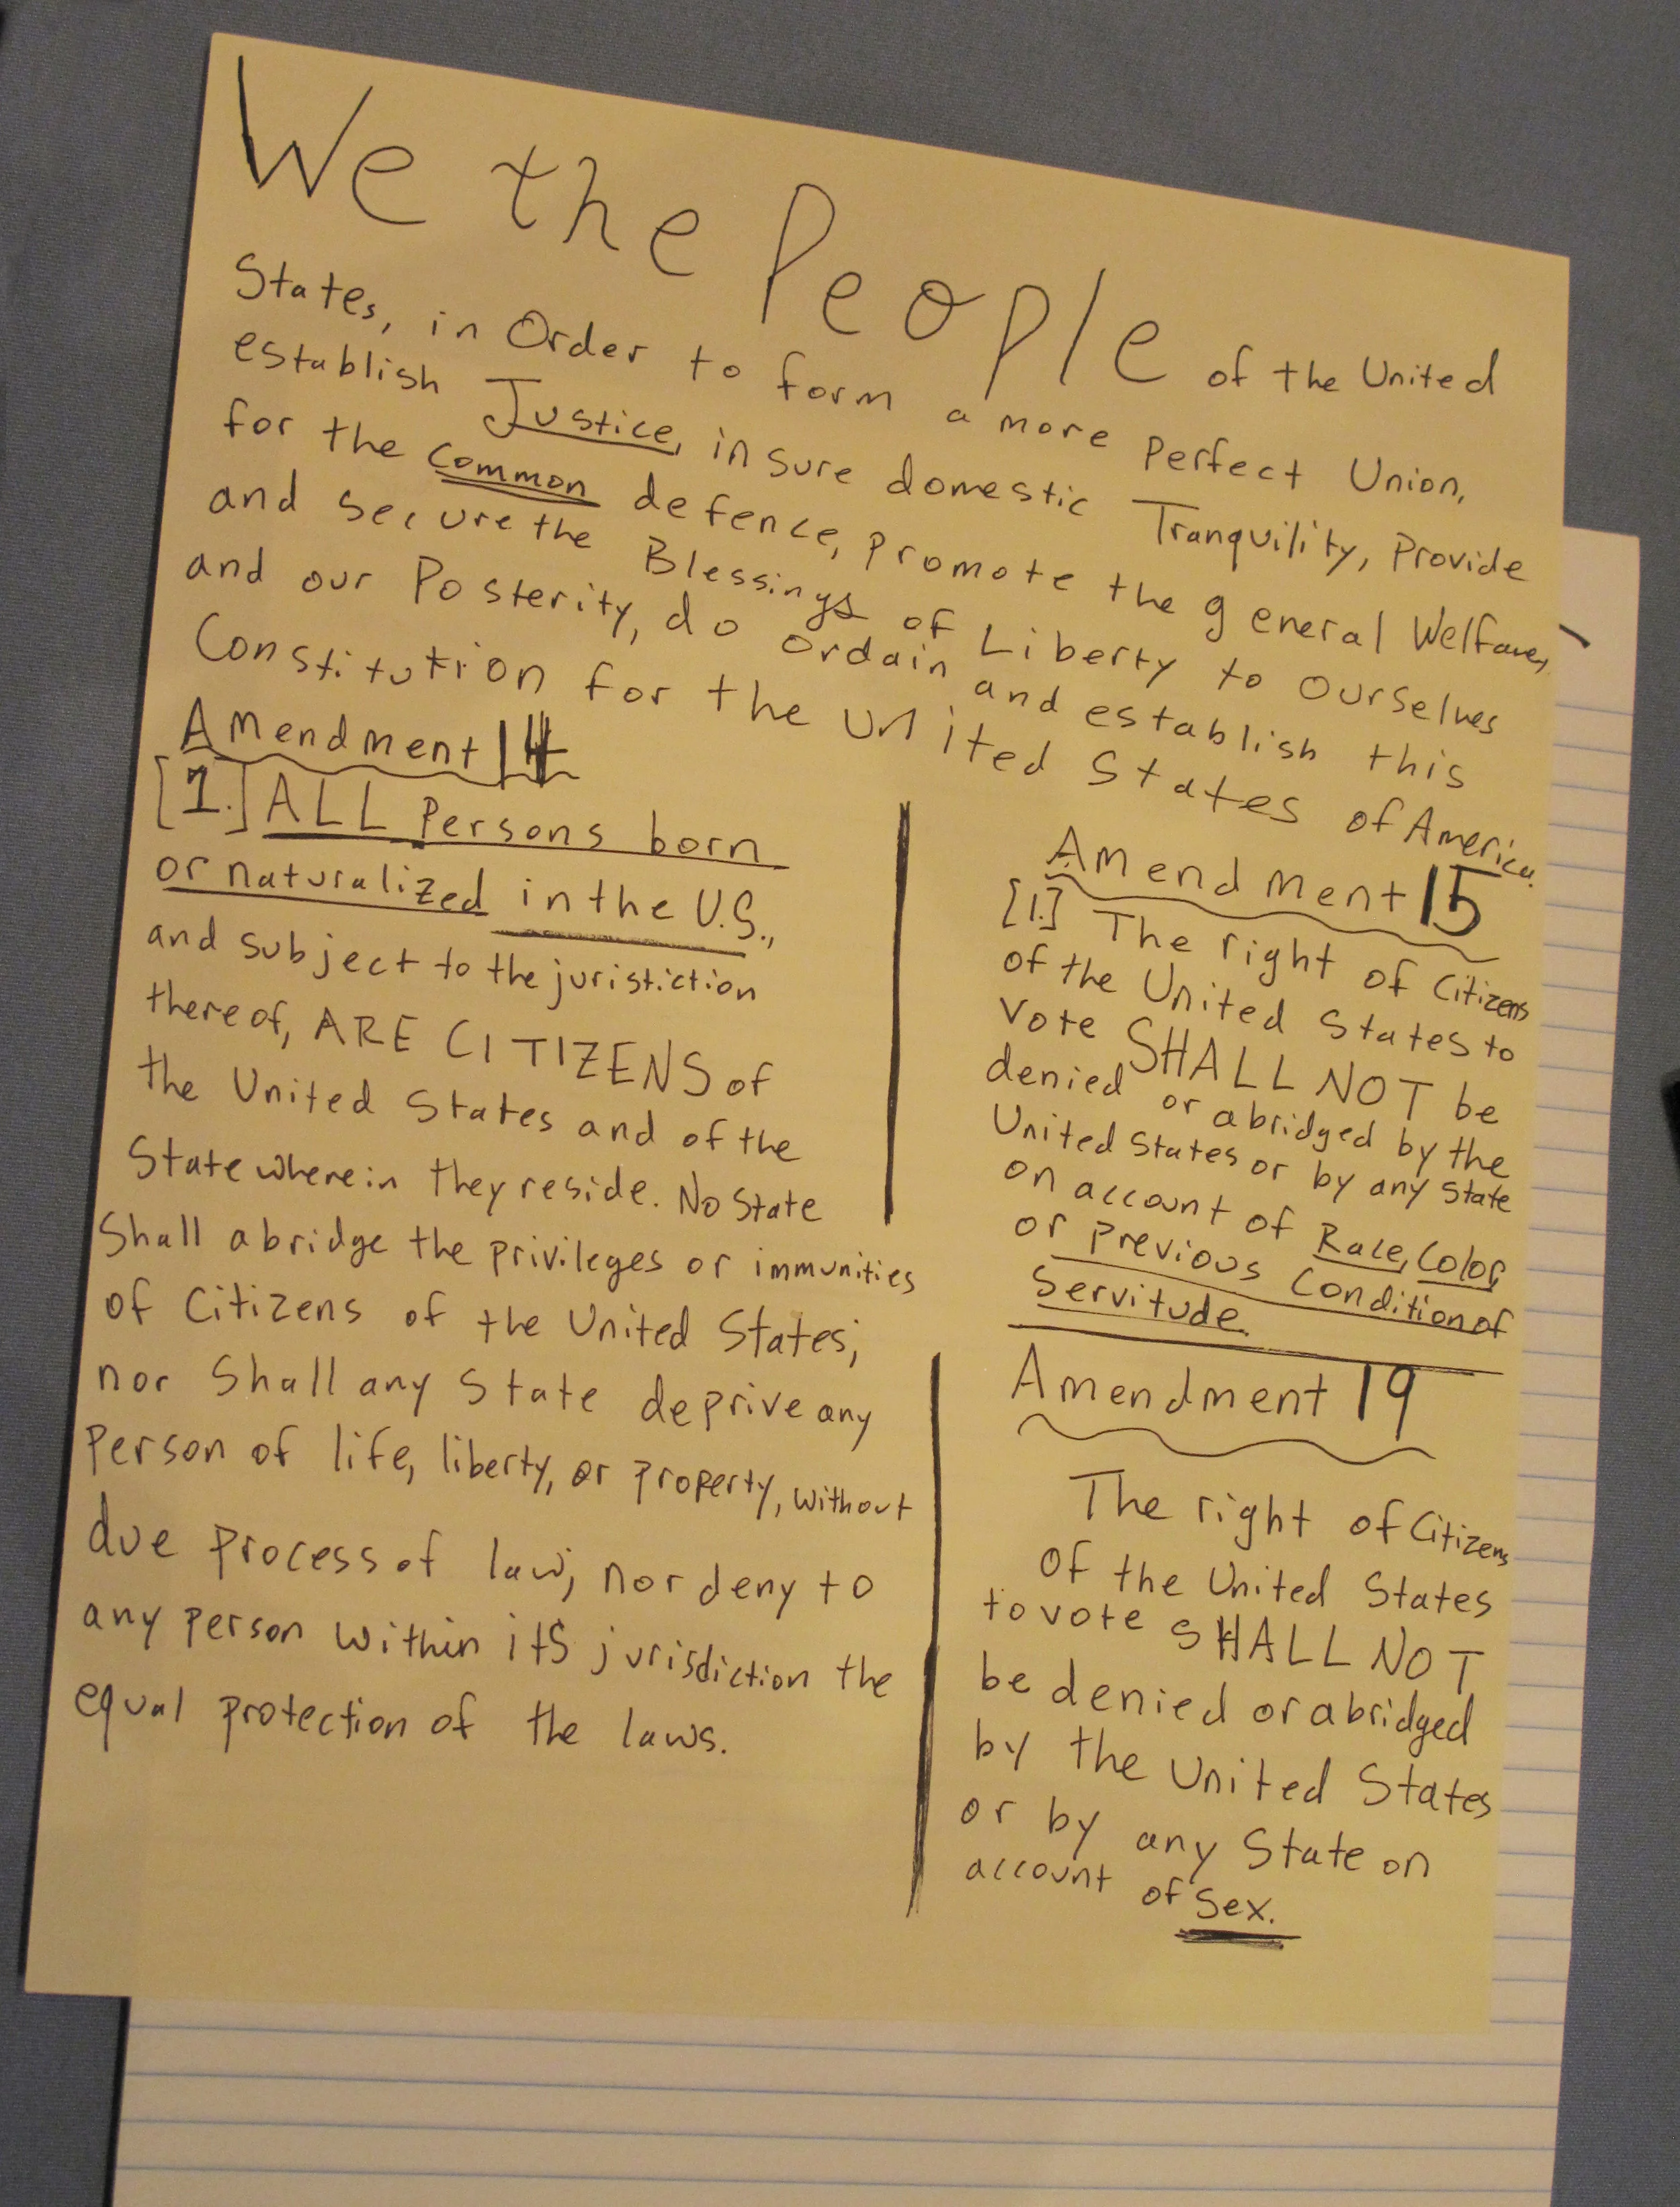 We the People of the United
States, in Order to form a more Perfect Union,
establish Justice, insure domestic Tranquility, Provide
for the common defence, promote the general Welfare,
and secure the Blessings of Liberty to ourselves
and our Posterity, do ordain and establish this
Constitution for the United States of America.
Amendment 14
[1.] ALL Persons born
or naturalized in the U.S.,
and subject to the juristiction
thereof, ARE CITIZENS of
the United States and of the
State wherein they reside. No State
Shall abridge the privileges or immunities
of Citizens of the United States;
nor Shall any State deprive any
Person of life, liberty, or property, without
due process of law; nor deny to
any person within itS jurisdiction the
equal protection of the laws.
Amendment 15
[1.] The right of Citizens
of the United States to
Vote SHALL NOT be
denied or abridged by the
United States or by any State
on account of Race, Color,
or previous Condition of
Servitude.
Amendment 19
The right of Citizens
of the United States
to vote SHALL NOT
be denied or abridged
by the United States
or by any State on
account of Sex.